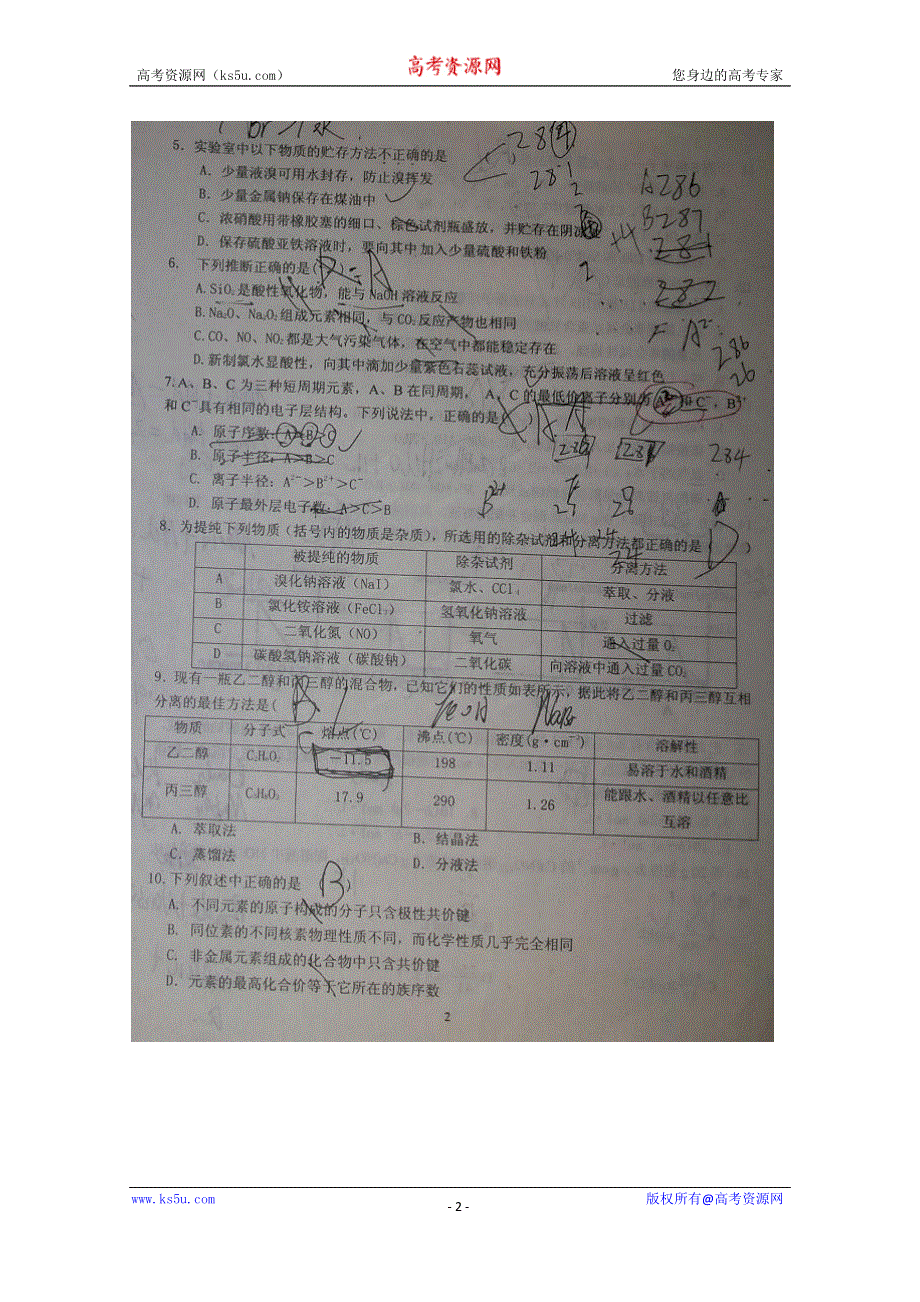 高考资源网（ks5u.com）
高考资源网
您身边的高考专家
5．实验室中以下物质的贮存方法不正确的是
A．少量液溴可用水封存，防止溴挥发
B．少量金属钠保存在煤油中
C．浓硝酸用带橡胶塞的细口、棕色试剂瓶盛放，并贮存在阴
D．保存硫酸亚铁溶液时，要向其中加入少量硫酸和铁粉
6． 下列推断正确的是(
A.SiO₂是酸性氧化物，能与NaOH溶液反应
B.Na₂O、Na₂O₂组成元素相同，与CO₂反应产物也相同
C.CO、NO、NO₂都是大气污染气体，在空气中都能稳定存在
D.新制氯水显酸性，向其中滴加少量紫色石蕊试液，充分振荡后溶液呈红色
7.A、B、C为三种短周期元素，A、B在同周期， A、C的最低价离子分别为A²⁻和C⁻，B²⁺
和C⁻具有相同的电子层结构。下列说法中，正确的是(
A．原子序数：A>B>C
B．原子半径：A>B>C
C．离子半径：A²⁻>B²⁺>C⁻
D．原子最外层电子数：A>C>B
8．为提纯下列物质（括号内的物质是杂质），所选用的除杂试剂和分离方法都正确的是( D )
被提纯的物质 除杂试剂 分离方法
A 溴化钠溶液（NaI） 氯水、CCl₄ 萃取、分液
B 氯化铵溶液（FeCl₃） 氢氧化钠溶液 过滤
C 二氧化氮（NO） 氧气 通入过量O₂
D 碳酸氢钠溶液（碳酸钠） 二氧化碳 向溶液中通入过量CO₂
9．现有一瓶乙二醇和丙三醇的混合物，已知它们的性质如表所示，据此将乙二醇和丙三醇互相
分离的最佳方法是(
物质 分子式 熔点(℃) 沸点(℃) 密度(g·cm⁻³) 溶解性
乙二醇 C₂H₆O₂ －11.5 198 1.11 易溶于水和酒精
丙三醇 C₃H₈O₃ 17.9 290 1.26 能跟水、酒精以任意比
互溶
A．萃取法 B．结晶法
C．蒸馏法 D．分液法
10.下列叙述中正确的是 ( B )
A．不同元素的原子构成的分子只含极性共价键
B．同位素的不同核素物理性质不同，而化学性质几乎完全相同
C．非金属元素组成的化合物中只含共价键
D．元素的最高化合价等于它所在的族序数
2
www.ks5u.com
- 2 -
版权所有@高考资源网